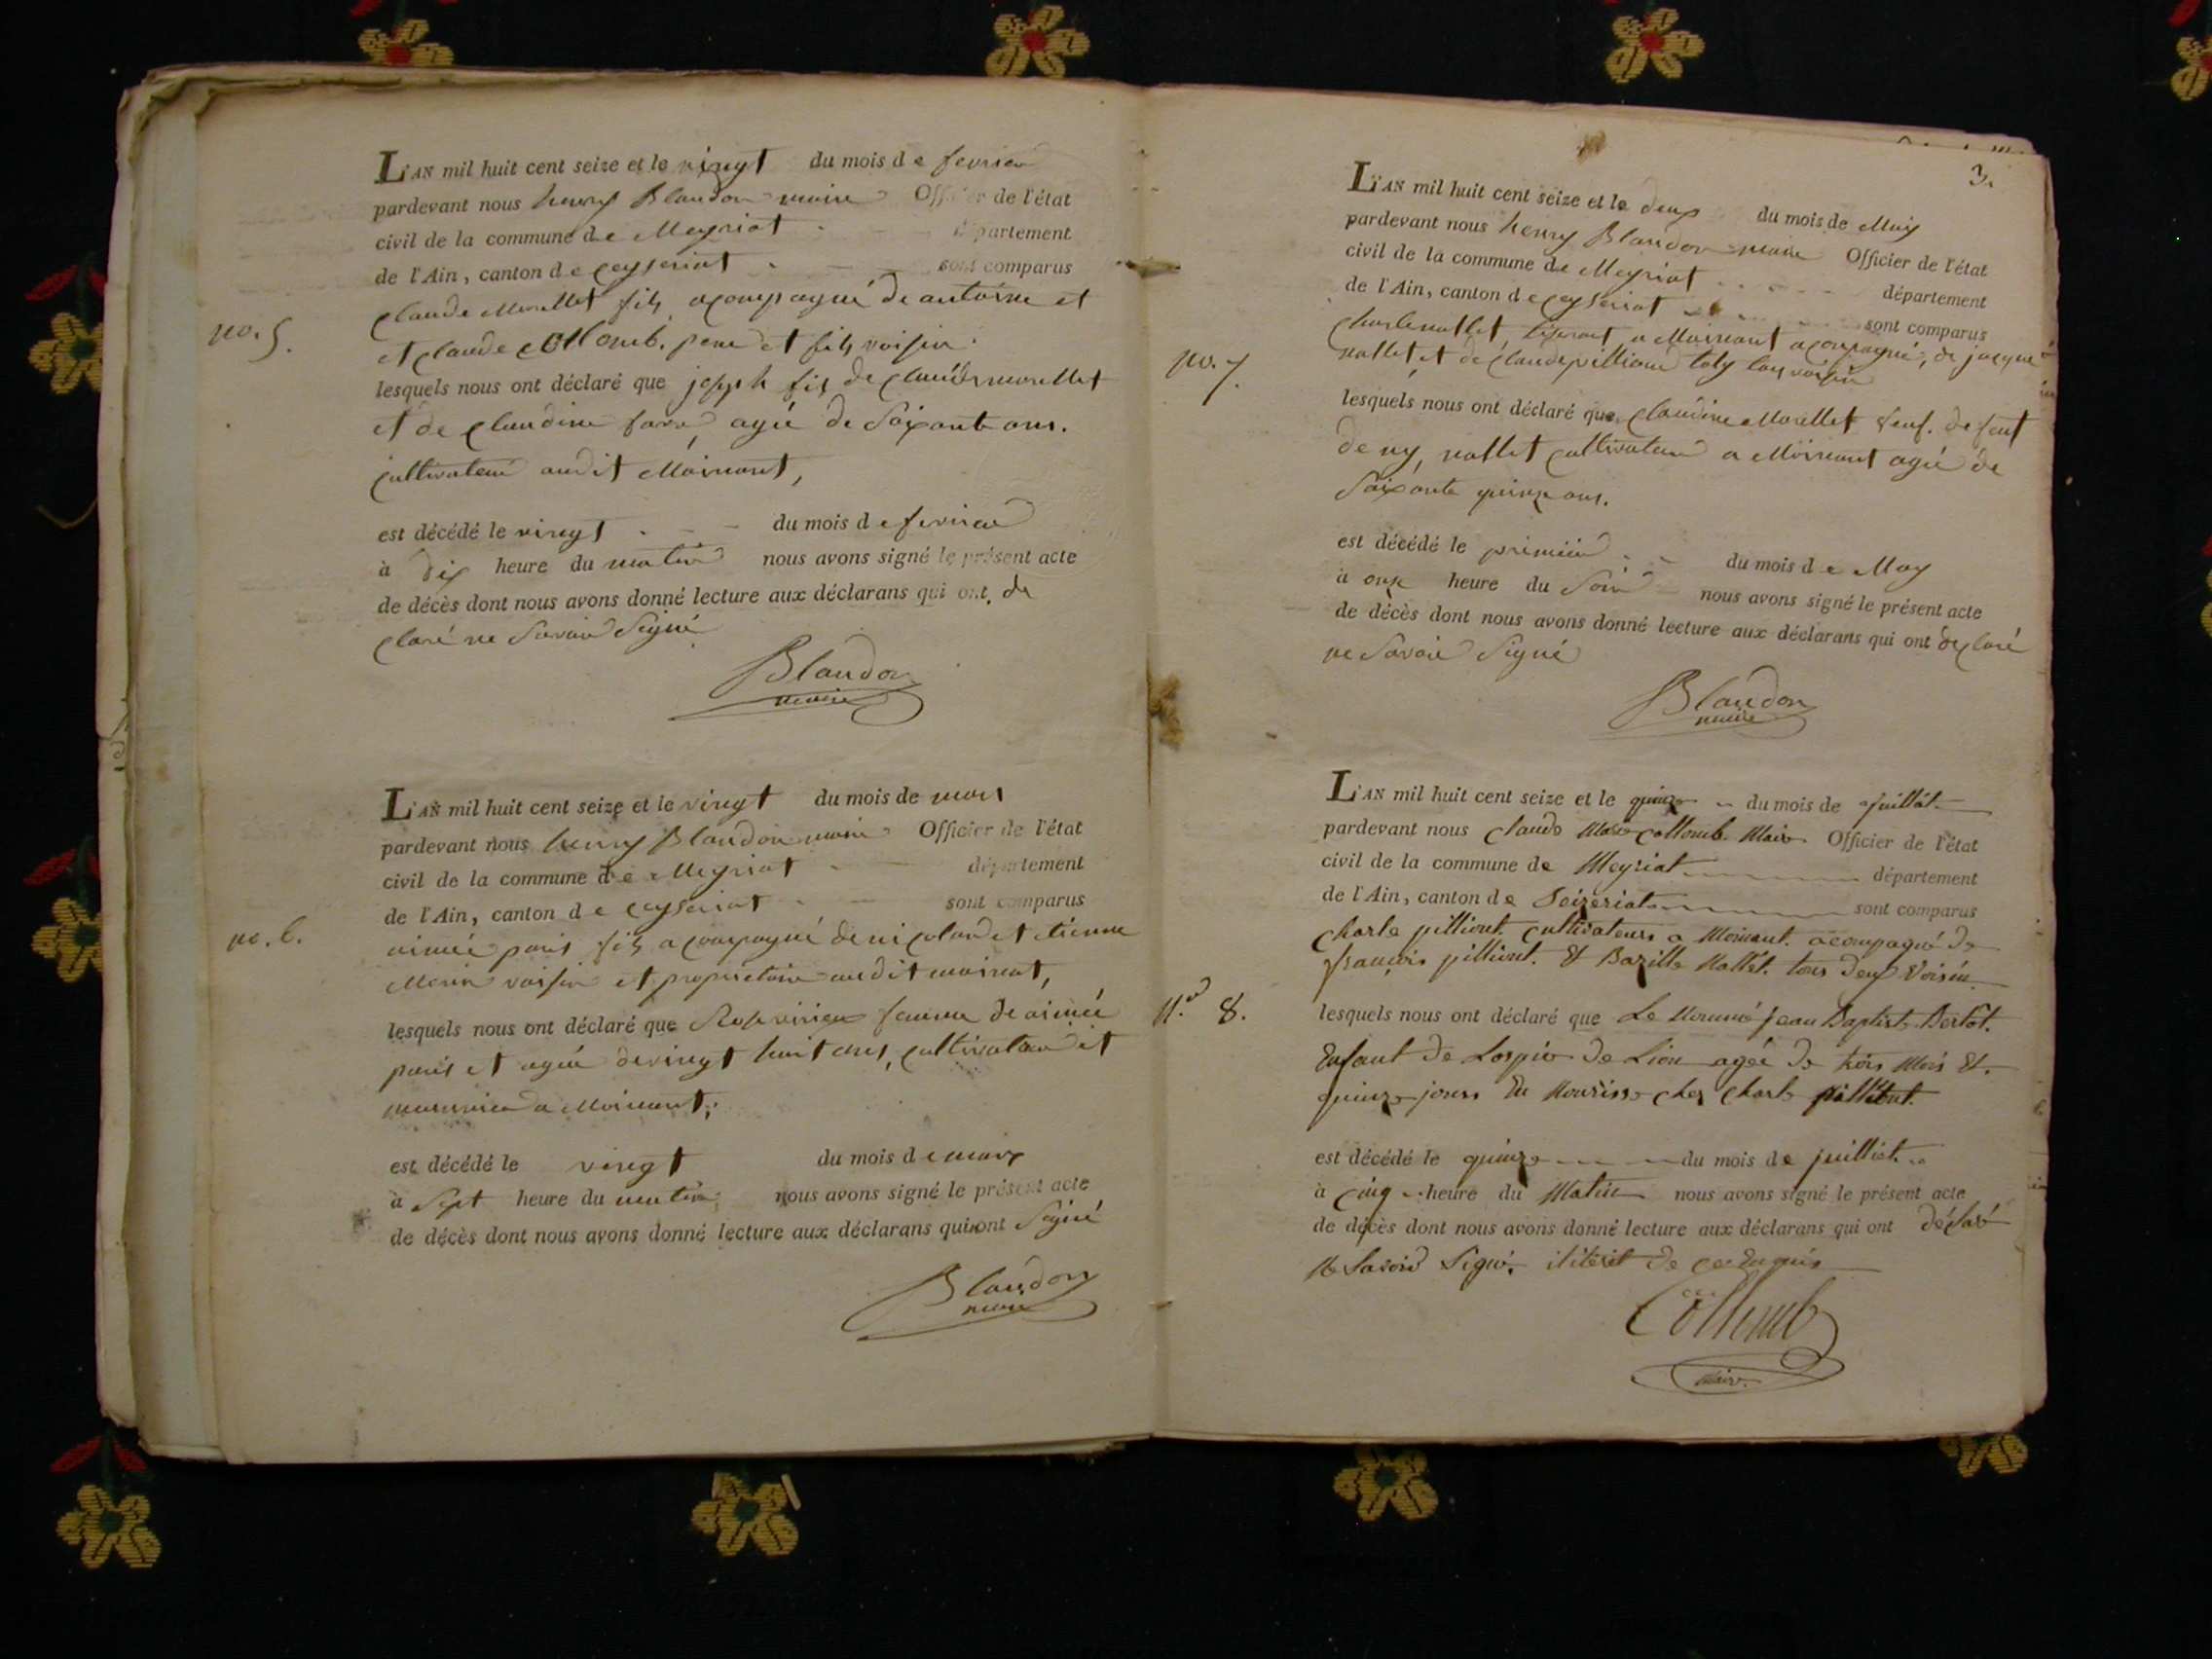 L'AN mil huit cent seize et le vingt du mois de fevrier
pardevant nous henry Blandon maire Officier de l'état
civil de la commune de Meyriat département
de l'Ain, canton de ceyseriat sont comparus
Claude Morellet fils acompagné de antoine et
et claude Collomb. pere et fils voisin.
no. 5.
lesquels nous ont déclaré que joseph fils de claude morellet
et de claudine agé de Soixante ans.
cultivateur audit Moinant,
est décédé le vingt du mois de fevrier
à dix heure du matin nous avons signé le présent acte
de décès dont nous avons donné lecture aux déclarans qui ont. de
claré ne Savoir Signé
Blandon
maire
L'AN mil huit cent seize et le vingt du mois de mars
pardevant nous henry Blandon maire Officier de l'état
civil de la commune de Meyriat département
de l'Ain, canton de ceyseriat sont comparus
no. 6.
aimée paris fils acompagné de nicolas et etienne
voisin et proprietaire audit moinant,
lesquels nous ont déclaré que Rose femme de aimée
paris et agée de vingt huit ans,
a Moinant,
est décédé le vingt du mois de mars
à Sept heure du matin nous avons signé le présent acte
de décès dont nous avons donné lecture aux déclarans qui ont Signé
Blandon
maire
3.
L'AN mil huit cent seize et le deux du mois de May
pardevant nous henry Blandon maire Officier de l'état
civil de la commune de Meyriat département
de l'Ain, canton de ceyseriat sont comparus
Charle nallet, tisserant a Moinant acompagné, de jacque
nallet, et de Claude voisin
no. 7.
lesquels nous ont déclaré que Claudine Morellet veuf. de feut
deny, nallet cultivateur a Moinant agée de
Soixante quinze ans.
est décédé le premier du mois de May
à onze heure du Soir nous avons signé le présent acte
de décès dont nous avons donné lecture aux déclarans qui ont declaré
ne Savoir Signé
Blandon
maire
L'AN mil huit cent seize et le quinze du mois de juillet
pardevant nous Claude Marie Collomb Maire Officier de l'état
civil de la commune de Meyriat département
de l'Ain, canton de sont comparus
Charle pilliont. cultivateurs a Moinant. acompagné de
françois pilliont. & Bazille Nallet. tous deux Voisin
N.º 8.
lesquels nous ont déclaré que Le Nommé jean Baptiste Bertot.
Enfant de Lospice de Lion agée de trois Mois &.
quinze jours En Nourisse chez Charle pilliont.
est décédé le quinze du mois de juilliet
à cinq heure du Matin nous avons signé le présent acte
de décès dont nous avons donné lecture aux déclarans qui ont déclaré
Ne Savoir Signé. de
Collomb
Maire